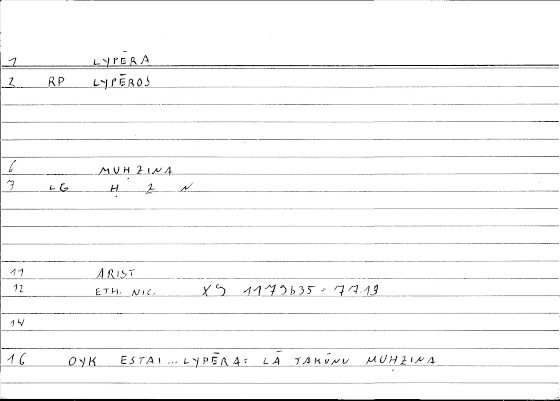 1 LYPĒRA
2 RP LYPĒROS
6 MUḤZINA
7 LG Ḥ Z N
11 ARIST
12 ETH. NIC. X9 1179b35 = 77.19
14
16 OYK ESTAI ... LYPĒRA = LĀ TAKŪNU MUḤZINA